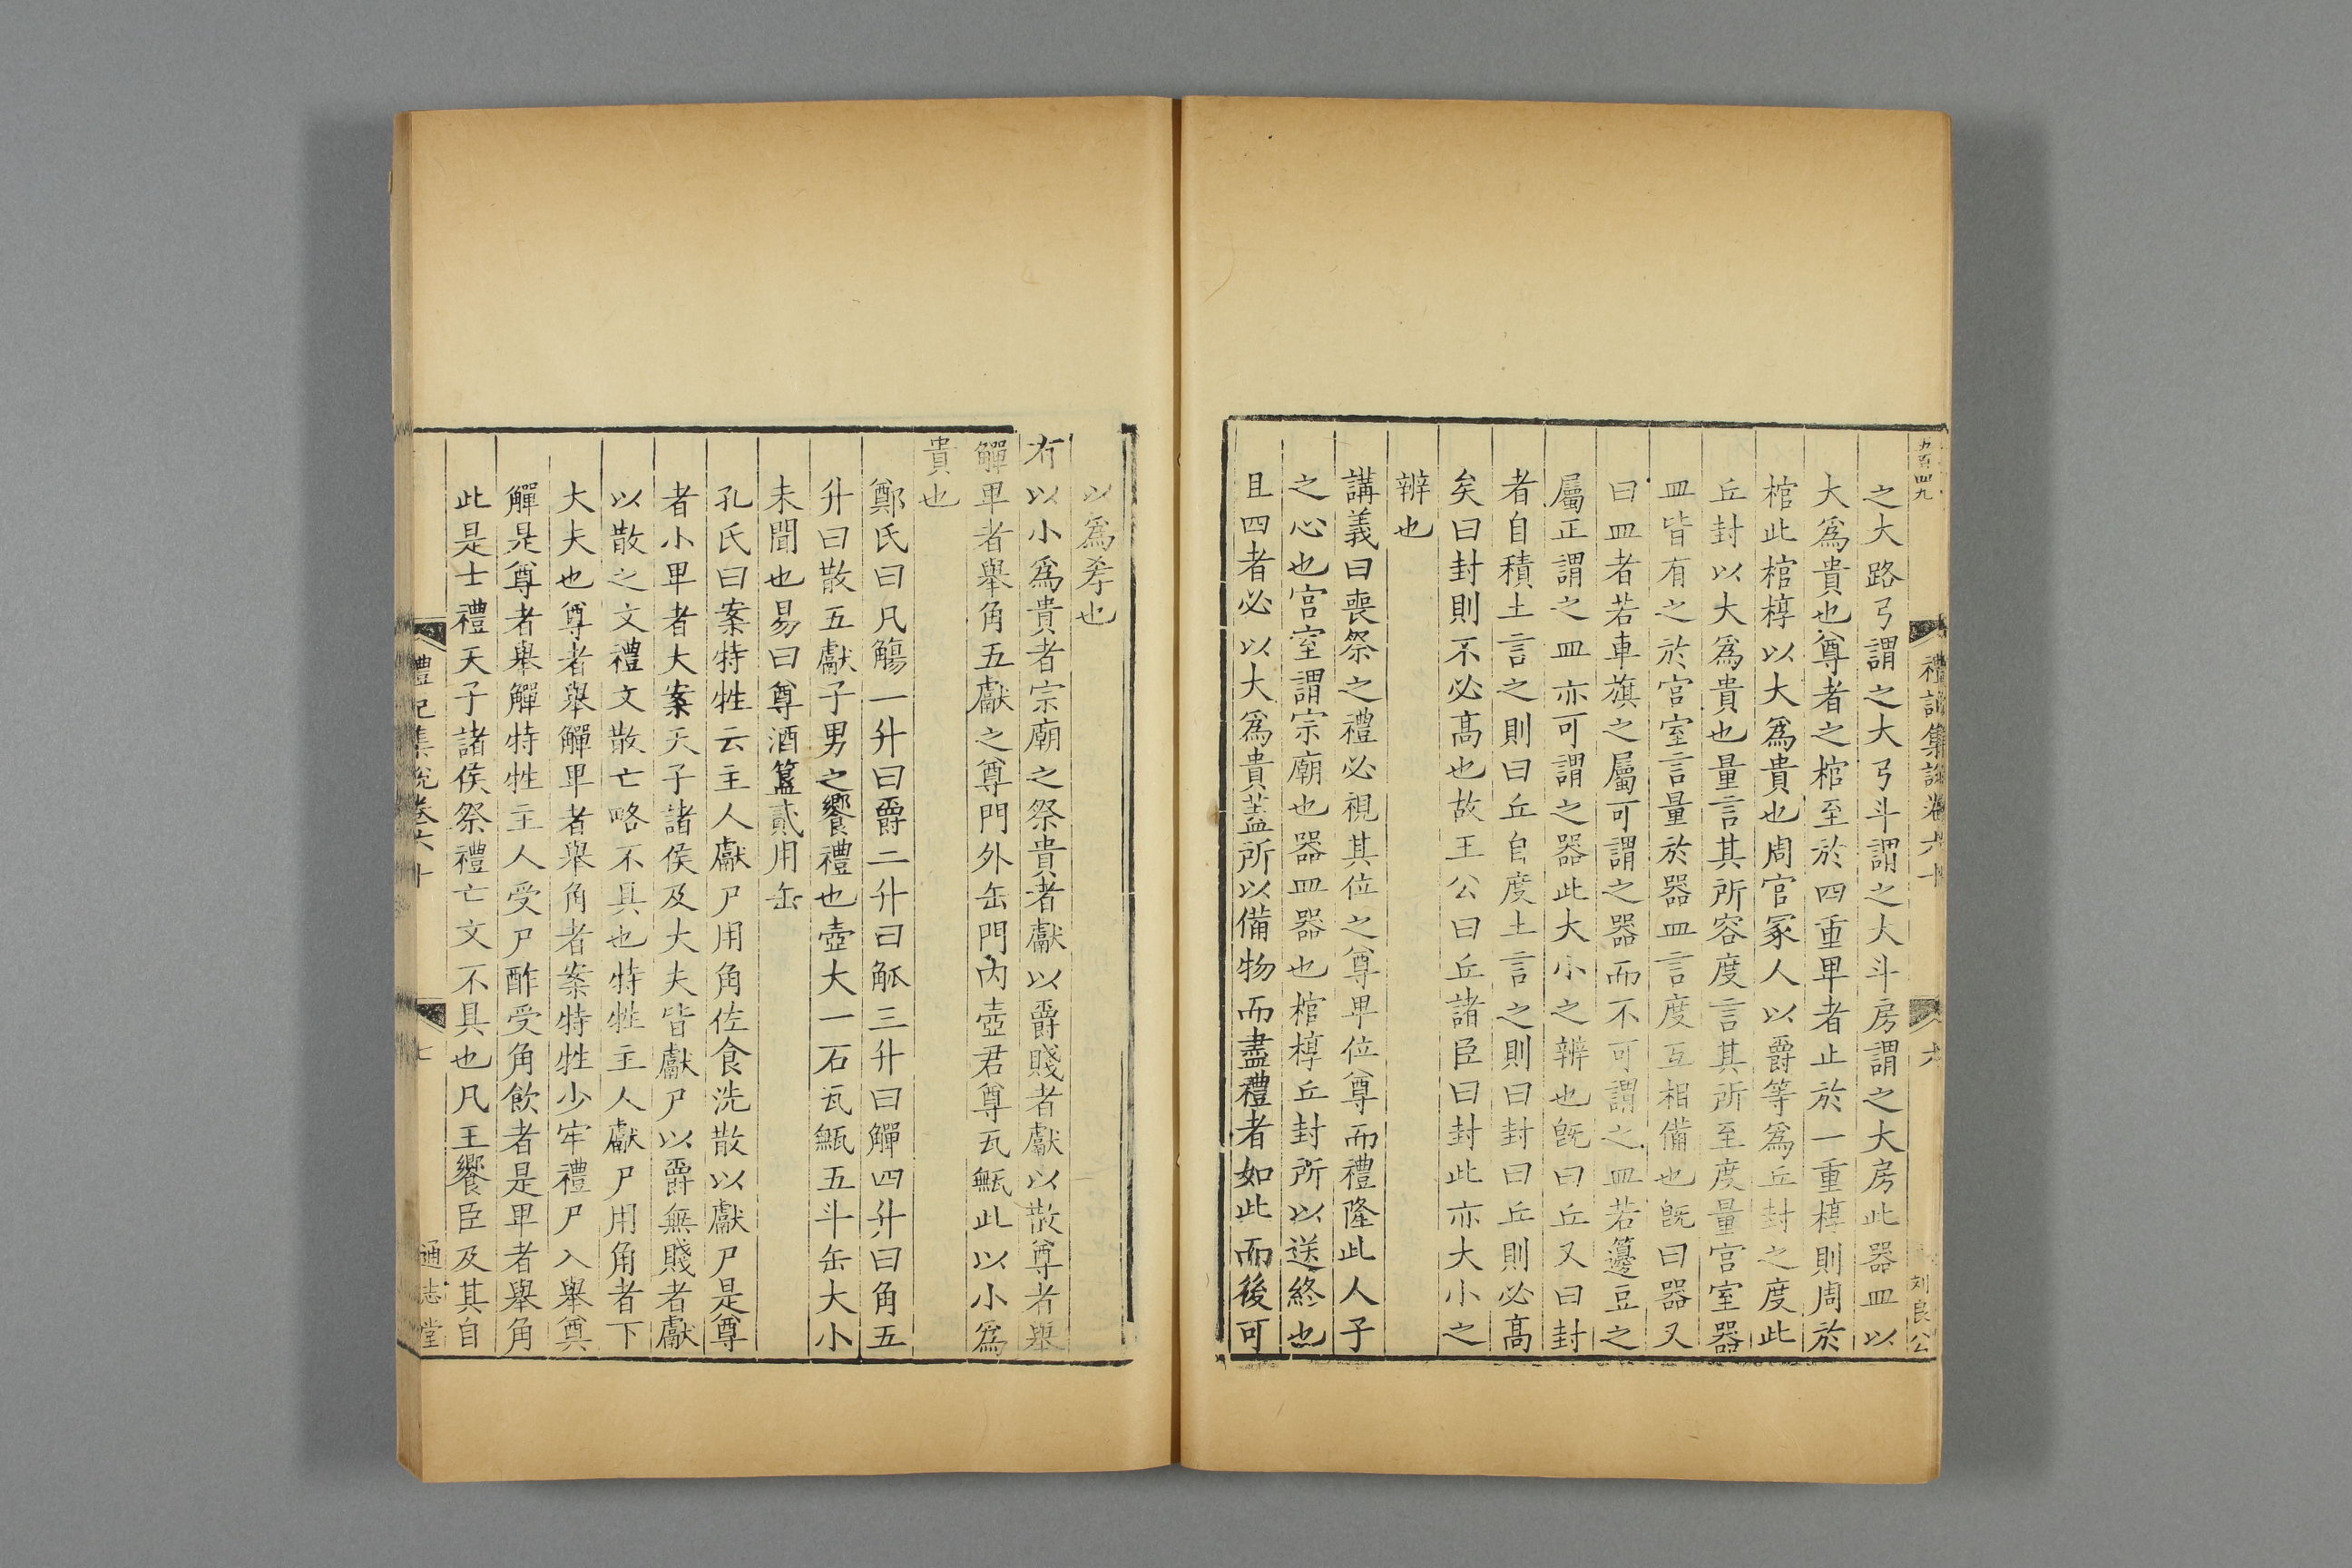 五百四九
禮記集說卷六十
六
刘良公
之大路弓謂之大弓斗謂之大斗房謂之大房此器皿以
大爲貴也尊者之棺至於四重卑者止於一重椁則周於
棺此棺椁以大爲貴也周官冢人以爵等爲丘封之度此
丘封以大爲貴也量言其所容度言其所至度量宫室器
皿皆有之於宫室言量於器皿言度互相備也旣曰器又
曰皿者若車旗之屬可謂之器而不可謂之皿若籩豆之
屬正謂之皿亦可謂之器此大小之辨也旣曰丘又曰封
者自積土言之則曰丘自度土言之則曰封曰丘則必高
矣曰封則不必高也故王公曰丘諸臣曰封此亦大小之
辨也
講義曰喪祭之禮必視其位之尊卑位尊而禮隆此人子
之心也宫室謂宗廟也器皿器也棺椁丘封所以送終也
且四者必以大爲貴蓋所以備物而盡禮者如此而後可
以爲孝也
有以小爲貴者宗廟之祭貴者獻以爵賤者獻以散尊者舉
觶卑者舉角五獻之尊門外缶門内壺君尊瓦甒此以小爲
貴也
鄭氏曰凡觴一升曰爵二升曰觚三升曰觶四升曰角五
升曰散五獻子男之饗禮也壺大一石瓦甒五斗缶大小
未聞也易曰尊酒簋貳用缶
孔氏曰案特牲云主人獻尸用角佐食洗散以獻尸是尊
者小卑者大案天子諸侯及大夫皆獻尸以爵無賤者獻
以散之文禮文散亡略不具也特牲主人獻尸用角者下
大夫也尊者舉觶卑者舉角者案特牲少牢禮尸入舉奠
觶是尊者舉觶特牲主人受尸酢受角飲者是卑者舉角
此是士禮天子諸侯祭禮亡文不具也凡王饗臣及其自
禮記集說卷六十
七
通志堂